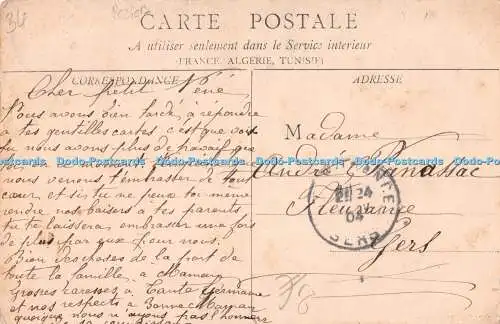 34
Béziers
CARTE POSTALE
A utiliser seulement dans le Service intérieur
(FRANCE, ALGÉRIE, TUNISIE)
CORRESPONDANCE
Cher petit Réné
Nous avons bien tardé à répondre
à tes gentilles cartes, c'est que vois
tu nous avons plus de travail que
nous venons t'embrasser de tout
cœur et si tu ne peux toi-même
rendre nos baisers à tes parents
tu te laissera embrasser une fois
de plus par que pour nous.
Bien des choses de la part de
toute la famille, à Maman
Grosses caresses, à Tante Germaine
et nos respects à Bonne Maman
quoique nous n'ayons pas l'honneur
de sa connaissance
ADRESSE
Madame
André Vanassac
Fleurance
Gers
24
04
GERS
Dodo-Postcards Dodo-Postcards Dodo-Postcards Dodo-Postcards Dodo-Postcards Dodo-Postcards